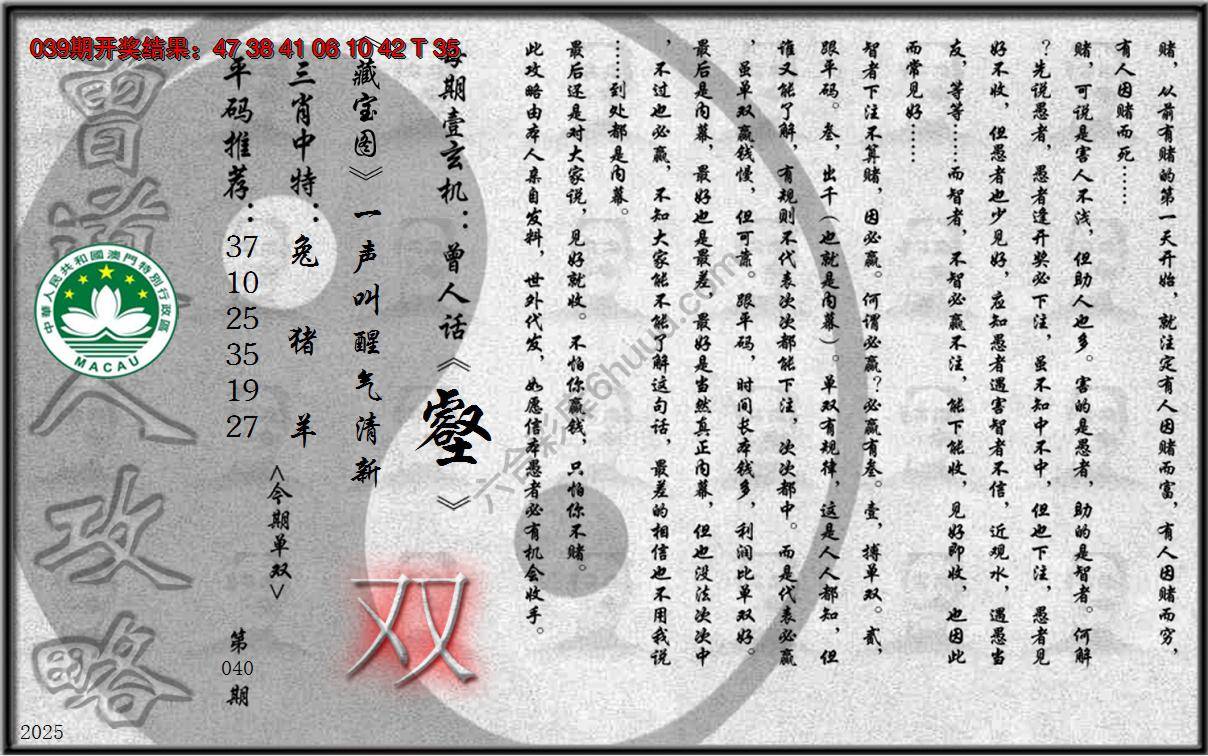 039期开奖结果：47 38 41 06 10 42 T 35
赌，从前有赌的第一天开始，就注定有人因赌而富，有人因赌而穷，
有人因赌而死……
赌，可说是害人不浅，但助人也多。害的是愚者，助的是智者。何解
？先说愚者，愚者逢开奖必下注，虽不知中不中，但也下注，愚者见
好不收，但愚者也少见好，应知愚者遇害智者不信，近观水，遇愚当
友，等等……而智者，不智必赢不注，能下能收，见好即收，也因此
而常见好……
智者下注不算赌，因必赢。何谓必赢？必赢有叁。壹，搏单双。贰，
跟平码。叁，出千（也就是内幕）。单双有规律，这是人人都知，但
谁又能了解，有规则不代表次次都能下注，次次都中。而是代表必赢
，虽单双赢钱慢，但可靠。跟平码，时间长本钱多，利润比单双好。
最后是内幕，最好也是最差，最好是当然真正内幕，但也没法次次中
，不过也必赢，不知大家能不能了解这句话，最差的相信也不用我说
……到处都是内幕。
最后还是对大家说，见好就收。不怕你赢钱，只怕你不赌。
此攻略由本人亲自发料，世外代发，如愿信本愚者必有机会收手。
每期壹玄机：曾人话《壑》
《藏宝图》一声叫醒气清新
三肖中特：兔 猪 羊
平码推荐：37 10 25 35 19 27
<今期单双>
双
第040期
曾道人攻略
中華人民共和國澳門特別行政區
MACAU
2025
六合彩库6huuu.com